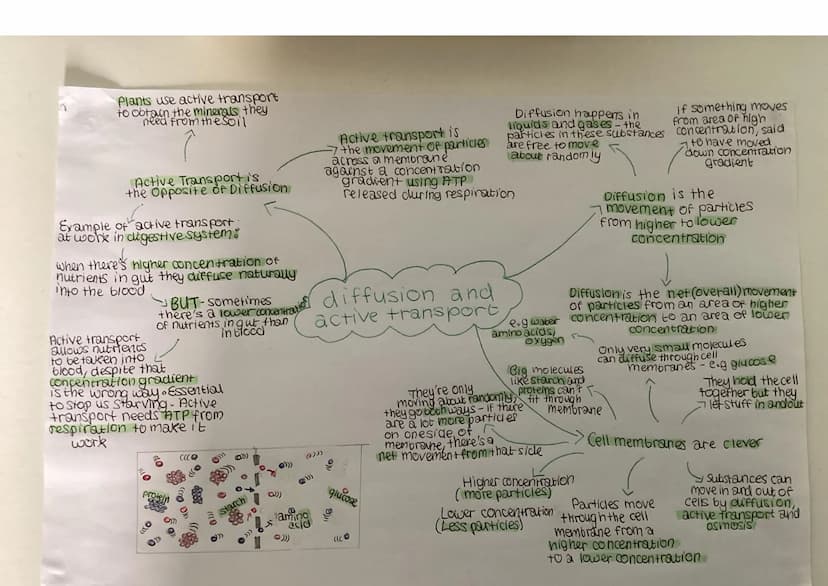 Plants use active transport
to obtain the minerals they
need from the soil
Active Transport is
the Opposite of Diffusion
Active transport is
the movement of particles
across a membrane
against a concentration
gradient using ATP
released during respiration
Example of active transport
at work in digestive system:
when there's higher concentration of
nutrients in gut they diffuse naturally
into the blood
BUT - sometimes
there's a lower concentration
of nutrients in gut than
in blood
Active transport
allows nutrients
to be taken into
blood, despite that
concentration gradient
is the wrong way. Essential
to stop us starving - Active
transport needs ATP from
respiration to make it
work
diffusion and
active transport
Diffusion happens in
liquids and gases - the
particles in these substances
are free to move
about randomly
If something moves
from area of high
concentration, said
to have moved
down concentration
gradient
Diffusion is the
movement of particles
from higher to lower
concentration
Diffusion is the net (overall) movement
of particles from an area of higher
concentration to an area of lower
concentration
e.g water
amino acids,
oxygen
Only very small molecules
can diffuse through cell
membranes - e.g glucose
Big molecules
like starch and
proteins can't
fit through
membrane
They hold the cell
together but they
let stuff in and out
They're only
moving about randomly,
they go both ways - if there
are a lot more particles
on one side of
membrane, there's a
net movement from that side
Cell membranes are clever
Higher concentration
(more particles)
Lower concentration
(Less particles)
Particles move
through the cell
membrane from a
higher concentration
to a lower concentration
Substances can
move in and out of
cells by diffusion,
active transport and
osmosis
protein
starch
glucose
amino
acid